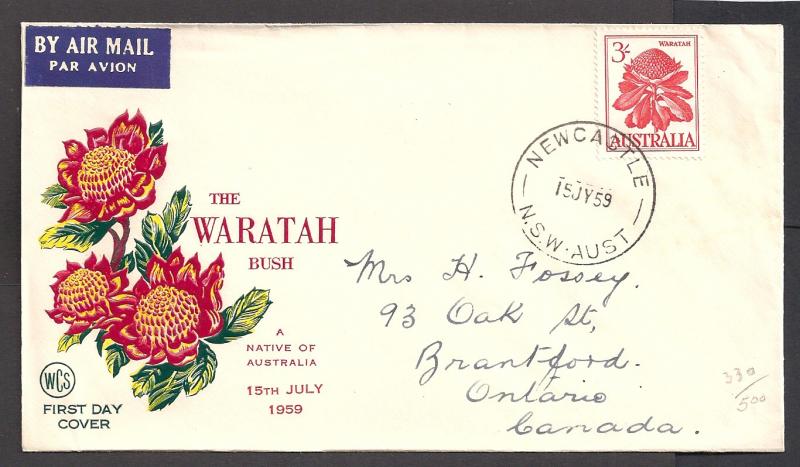 BY AIR MAIL
PAR AVION
WARATAH
3/-
AUSTRALIA
NEWCASTLE
15JY59
N.S.W. AUST
THE
WARATAH
BUSH
A
NATIVE OF
AUSTRALIA
15TH JULY
1959
WCS
FIRST DAY
COVER
Mrs H. Fossey.
93 Oak St,
Brantford.
Ontario
Canada.
330/
500